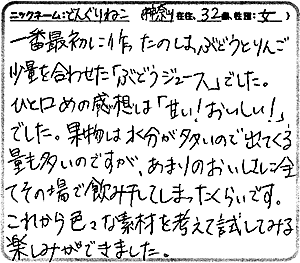 ニックネーム:どんぐりねこ 神奈川在住、32歳、性別:女
一番最初に作ったのは、ぶどうとりんご
少量を合わせた「ぶどうジュース」でした。
ひと口めの感想は「甘い!おいしい!」
でした。果物は水分が多いので出てくる
量も多いのですが、あまりのおいしさに全
てその場で飲み干してしまったくらいです。
これから色々な素材を考えて試してみる
楽しみができました。